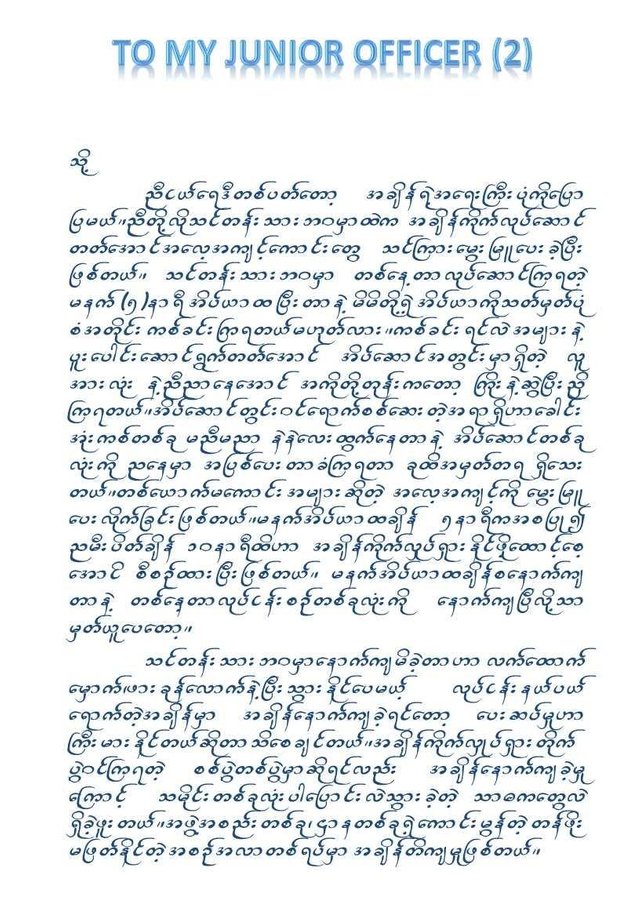 TO MY JUNIOR OFFICER (2)
သို့
ညီငယ်ရေဒီတစ်ပတ်တော့ အချိန်ရဲ့အရေးကြီးပုံကိုပြော
ပြမယ်။ညီတို့လိုသင်တန်းသားဘဝမှာထဲက အချိန်ကိုက်လုပ်ဆောင်
တတ်အောင်အလေ့အကျင့်ကောင်းတွေ သင်ကြားမွေးမြူပေးခဲ့ပြီး
ဖြစ်တယ်။ သင်တန်းသားဘဝမှာ တစ်နေ့တာလုပ်ဆောင်ကြရတဲ့
မနက် (၅)နာရီ အိပ်ယာထပြီးတာနဲ့ မိမိတို့ရဲ့ အိပ်ယာကိုသတ်မှတ်ပုံ
စံအတိုင်း ကစ်ခင်းကြရတယ်မဟုတ်လား။ကစ်ခင်းရင်လဲအများနဲ့
ပူးပေါင်းဆောင်ရွက်တတ်အောင် အိပ်ဆောင်အတွင်းမှာရှိတဲ့ လူ
အားလုံး နဲ့ညီညာနေအောင် အကိုတို့တုန်းကတော့ ကြိုးနဲ့ဆွဲပြီးညှိ
ကြရတယ်။အိပ်ဆောင်တွင်းဝင်ရောက်စစ်ဆေးတဲ့အရာရှိဟာခေါင်း
အုံးကစ်တစ်ခု မညီမညာ နဲနဲလေးထွက်နေတာနဲ့ အိပ်ဆောင်တစ်ခု
လုံးကို ညနေမှာ အပြစ်ပေးတာခံကြရတာ ခုထိအမှတ်တရ ရှိသေး
တယ်။တစ်ယောက်မကောင်းအများဆိုတဲ့ အလေ့အကျင့်ကို မွေးမြူ
ပေးလိုက်ခြင်းဖြစ်တယ်။မနက်အိပ်ယာထချိန် ၅နာရီကအစပြု၍
ညမီးပိတ်ချိန် ၁၀နာရီထိဟာ အချိန်ကိုက်လှုပ်ရှားနိုင်ဖို့ထောင့်စေ့
အောင် စီစဉ်ထားပြီးဖြစ်တယ်။ မနက်အိပ်ယာထချိန်စနောက်ကျ
တာနဲ့ တစ်နေ့တာလုပ်ငန်းစဉ်တစ်ခုလုံးကို နောက်ကျပြီလို့သာ
မှတ်ယူပေတော့။
သင်တန်းသားဘဝမှာနောက်ကျမိခဲ့တာဟာ လက်ထောက်
မှောက်ဖားခုန်လောက်နဲ့ပြီးသွားနိုင်ပေမယ့် လုပ်ငန်းနယ်ပယ်
ရောက်တဲ့အချိန်မှာ အချိန်နောက်ကျခဲ့ရင်တော့ ပေးဆပ်မှုဟာ
ကြီးမားနိုင်တယ်ဆိုတာသိစေချင်တယ်။အချိန်ကိုက်လှုပ်ရှားတိုက်
ပွဲဝင်ကြရတဲ့ စစ်ပွဲတစ်ပွဲမှာဆိုရင်လည်း အချိန်နောက်ကျခဲ့မှု
ကြောင့် သမိုင်းတစ်ခုလုံးပါပြောင်းလဲသွားခဲ့တဲ့ သာဓကတွေလဲ
ရှိခဲ့ဖူးတယ်။အဖွဲ့အစည်းတစ်ခု၊ဌာနတစ်ခုရဲ့ကောင်းမွန်တဲ့တန်ဖိုး
မဖြတ်နိုင်တဲ့အစဉ်အလာတစ်ရပ်မှာ အချိန်တိကျမှုဖြစ်တယ်။